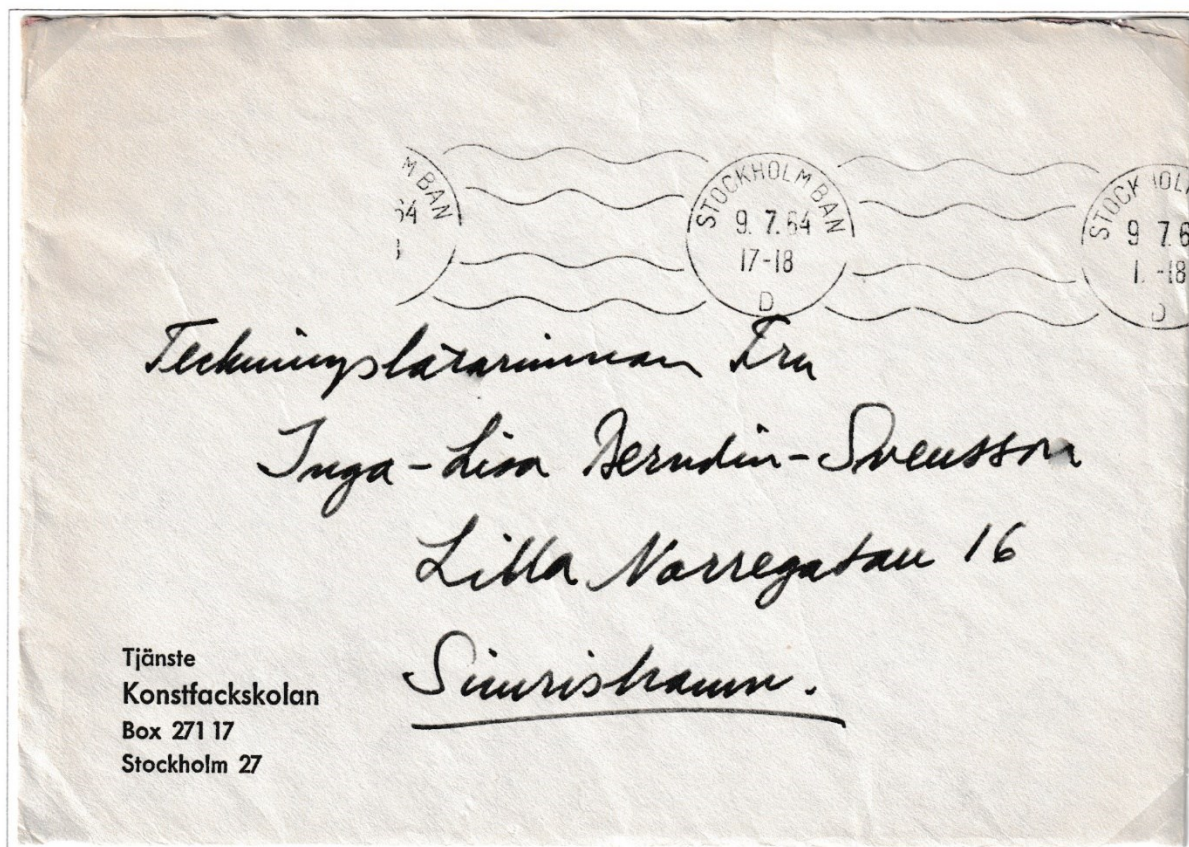 M BAN
64
STOCKHOLM BAN
9. 7. 64
17-18
D
STOCKHOLM
9 7. 6
1 -18
D
Teckningslärarinnan Fru
Inga-Lisa Berndin-Svensson
Lilla Norregatan 16
Simrishamn.
Tjänste
Konstfackskolan
Box 271 17
Stockholm 27